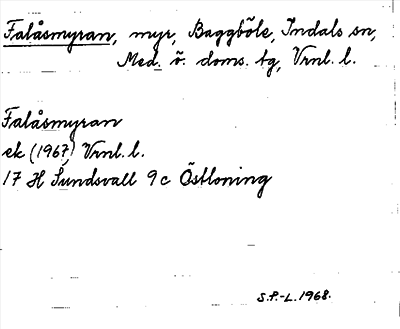 Falåsmyran, myr, Baggböle, Indals sn,
Med. ö. doms. tg, Vrnl. l.
Falåsmyran
ek (1967) Vrnl. l.
17 H Sundsvall 9c Östloning
S.P.-L. 1968.